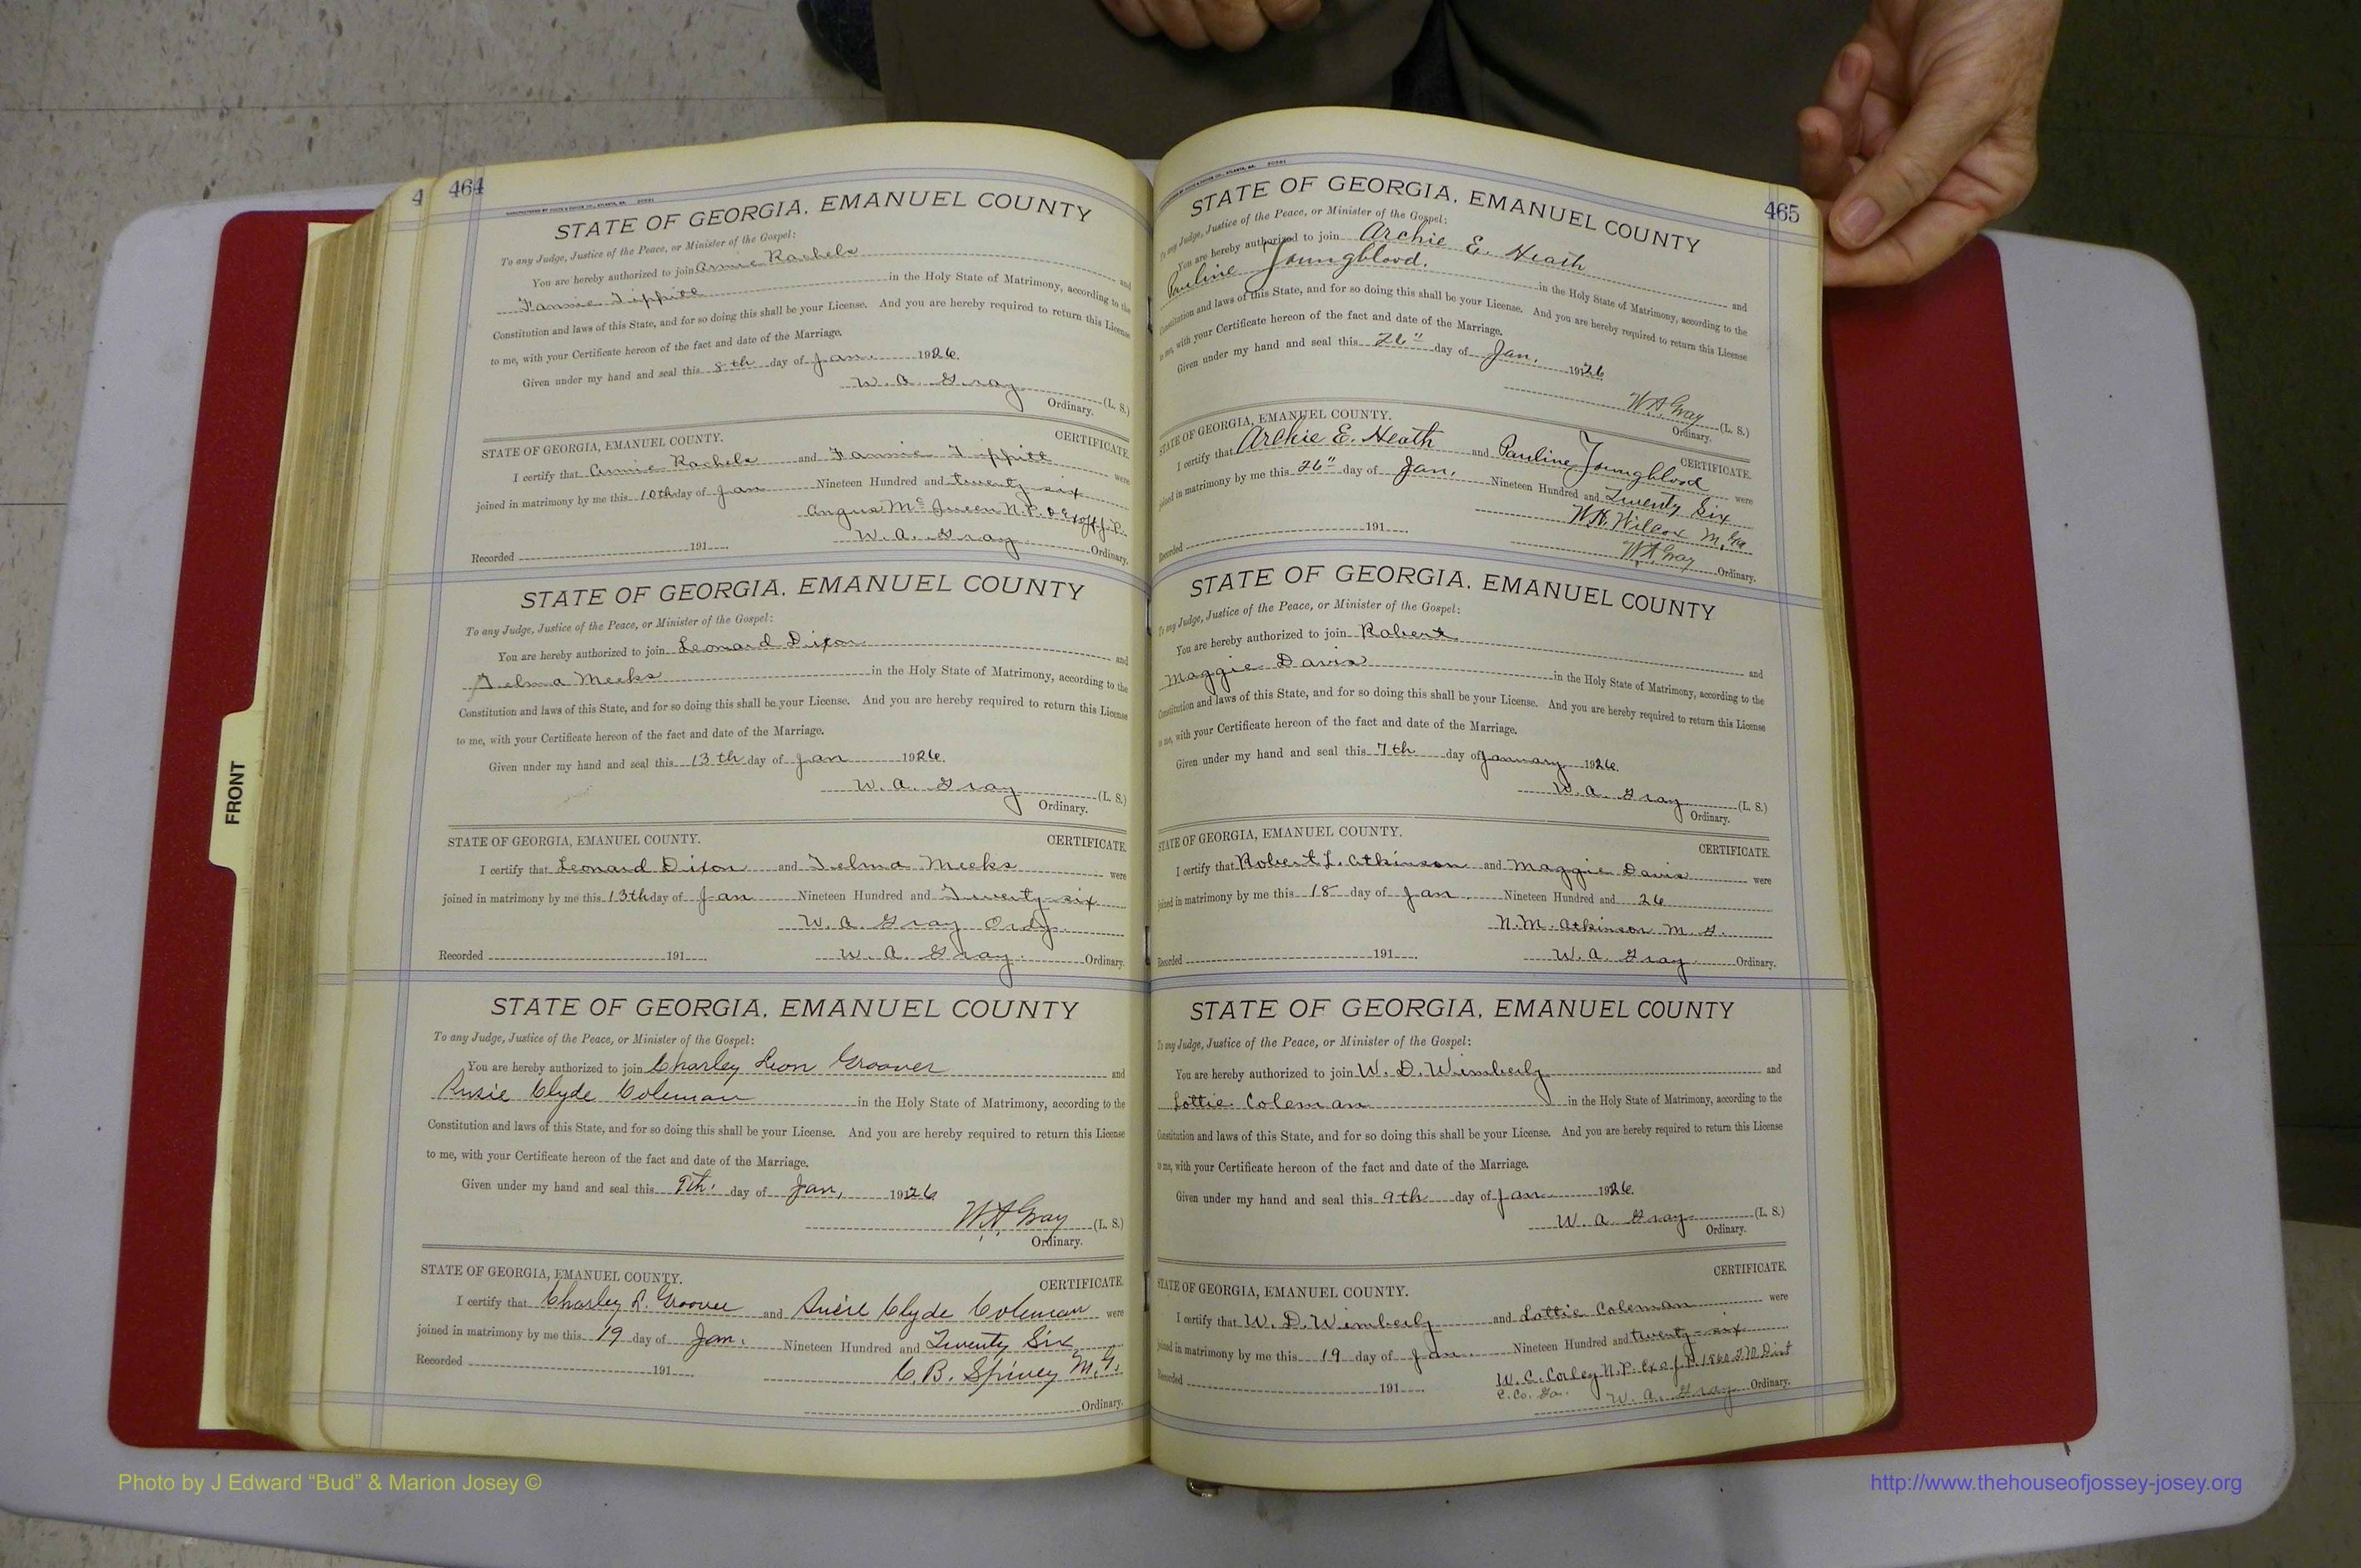 4
464
STATE OF GEORGIA, EMANUEL COUNTY
To any Judge, Justice of the Peace, or Minister of the Gospel:
You are hereby authorized to join Annie Rachels and
Fannie Tippitt in the Holy State of Matrimony, according to the
Constitution and laws of this State, and for so doing this shall be your License. And you are hereby required to return this License
to me, with your Certificate hereon of the fact and date of the Marriage.
Given under my hand and seal this 8th day of Jan. 1926.
W. A. Gray (L. S.)
Ordinary.
STATE OF GEORGIA, EMANUEL COUNTY. CERTIFICATE
I certify that Annie Rachels and Fannie Tippitt were
joined in matrimony by me this 10th day of Jan Nineteen Hundred and twenty-six
Angus McQueen N.P. & Exoff J.P.
Recorded 191 W. A. Gray Ordinary.
STATE OF GEORGIA, EMANUEL COUNTY
To any Judge, Justice of the Peace, or Minister of the Gospel:
You are hereby authorized to join Leonard Dixon and
Telma Meeks in the Holy State of Matrimony, according to the
Constitution and laws of this State, and for so doing this shall be your License. And you are hereby required to return this License
to me, with your Certificate hereon of the fact and date of the Marriage.
Given under my hand and seal this 13th day of Jan 1926.
W. A. Gray (L. S.)
Ordinary.
STATE OF GEORGIA, EMANUEL COUNTY. CERTIFICATE
I certify that Leonard Dixon and Telma Meeks were
joined in matrimony by me this 13th day of Jan Nineteen Hundred and Twenty-six
W. A. Gray Ordy.
Recorded 191 W. A. Gray. Ordinary.
STATE OF GEORGIA, EMANUEL COUNTY
To any Judge, Justice of the Peace, or Minister of the Gospel:
You are hereby authorized to join Charley Leon Groover and
Susie Clyde Coleman in the Holy State of Matrimony, according to the
Constitution and laws of this State, and for so doing this shall be your License. And you are hereby required to return this License
to me, with your Certificate hereon of the fact and date of the Marriage.
Given under my hand and seal this 9th. day of Jan, 1926
W.A. Gray (L. S.)
Ordinary.
STATE OF GEORGIA, EMANUEL COUNTY. CERTIFICATE
I certify that Charley L. Groover and Susie Clyde Coleman were
joined in matrimony by me this 19 day of Jan. Nineteen Hundred and Twenty Six
Recorded 191 C. B. Spivey M.G.
Ordinary.
465
STATE OF GEORGIA, EMANUEL COUNTY
To any Judge, Justice of the Peace, or Minister of the Gospel:
You are hereby authorized to join Archie E. Heath and
Pauline Youngblood. in the Holy State of Matrimony, according to the
Constitution and laws of this State, and for so doing this shall be your License. And you are hereby required to return this License
to me, with your Certificate hereon of the fact and date of the Marriage.
Given under my hand and seal this 26" day of Jan. 1926
W.A. Gray (L. S.)
Ordinary.
STATE OF GEORGIA, EMANUEL COUNTY. CERTIFICATE
I certify that Archie E. Heath and Pauline Youngblood were
joined in matrimony by me this 26" day of Jan. Nineteen Hundred and Twenty Six
W.H. Wilcox
Recorded 191 W.A. Gray Ordinary.
STATE OF GEORGIA, EMANUEL COUNTY
To any Judge, Justice of the Peace, or Minister of the Gospel:
You are hereby authorized to join Robert and
Maggie Davis in the Holy State of Matrimony, according to the
Constitution and laws of this State, and for so doing this shall be your License. And you are hereby required to return this License
to me, with your Certificate hereon of the fact and date of the Marriage.
Given under my hand and seal this 7th day of January 1926.
W. A. Gray (L. S.)
Ordinary.
STATE OF GEORGIA, EMANUEL COUNTY. CERTIFICATE
I certify that Robert L. Atkinson and Maggie Davis were
joined in matrimony by me this 18 day of Jan. Nineteen Hundred and 26
N.M. Atkinson M. G.
Recorded 191 W. A. Gray. Ordinary.
STATE OF GEORGIA, EMANUEL COUNTY
To any Judge, Justice of the Peace, or Minister of the Gospel:
You are hereby authorized to join W. D. Wimberly and
Lottie Coleman in the Holy State of Matrimony, according to the
Constitution and laws of this State, and for so doing this shall be your License. And you are hereby required to return this License
to me, with your Certificate hereon of the fact and date of the Marriage.
Given under my hand and seal this 9th day of Jan 1926.
W. A. Gray (L. S.)
Ordinary.
STATE OF GEORGIA, EMANUEL COUNTY. CERTIFICATE
I certify that W. D. Wimberly and Lottie Coleman were
joined in matrimony by me this 19 day of Jan. Nineteen Hundred and twenty-six
W. C. Corley N.P. Ex of J.P. 1560 G.M. Dist
E. Co. Ga.
Recorded 191 W. A. Gray Ordinary.
FRONT
Photo by J Edward “Bud” & Marion Josey ©
http://www.thehouseofjossey-josey.org